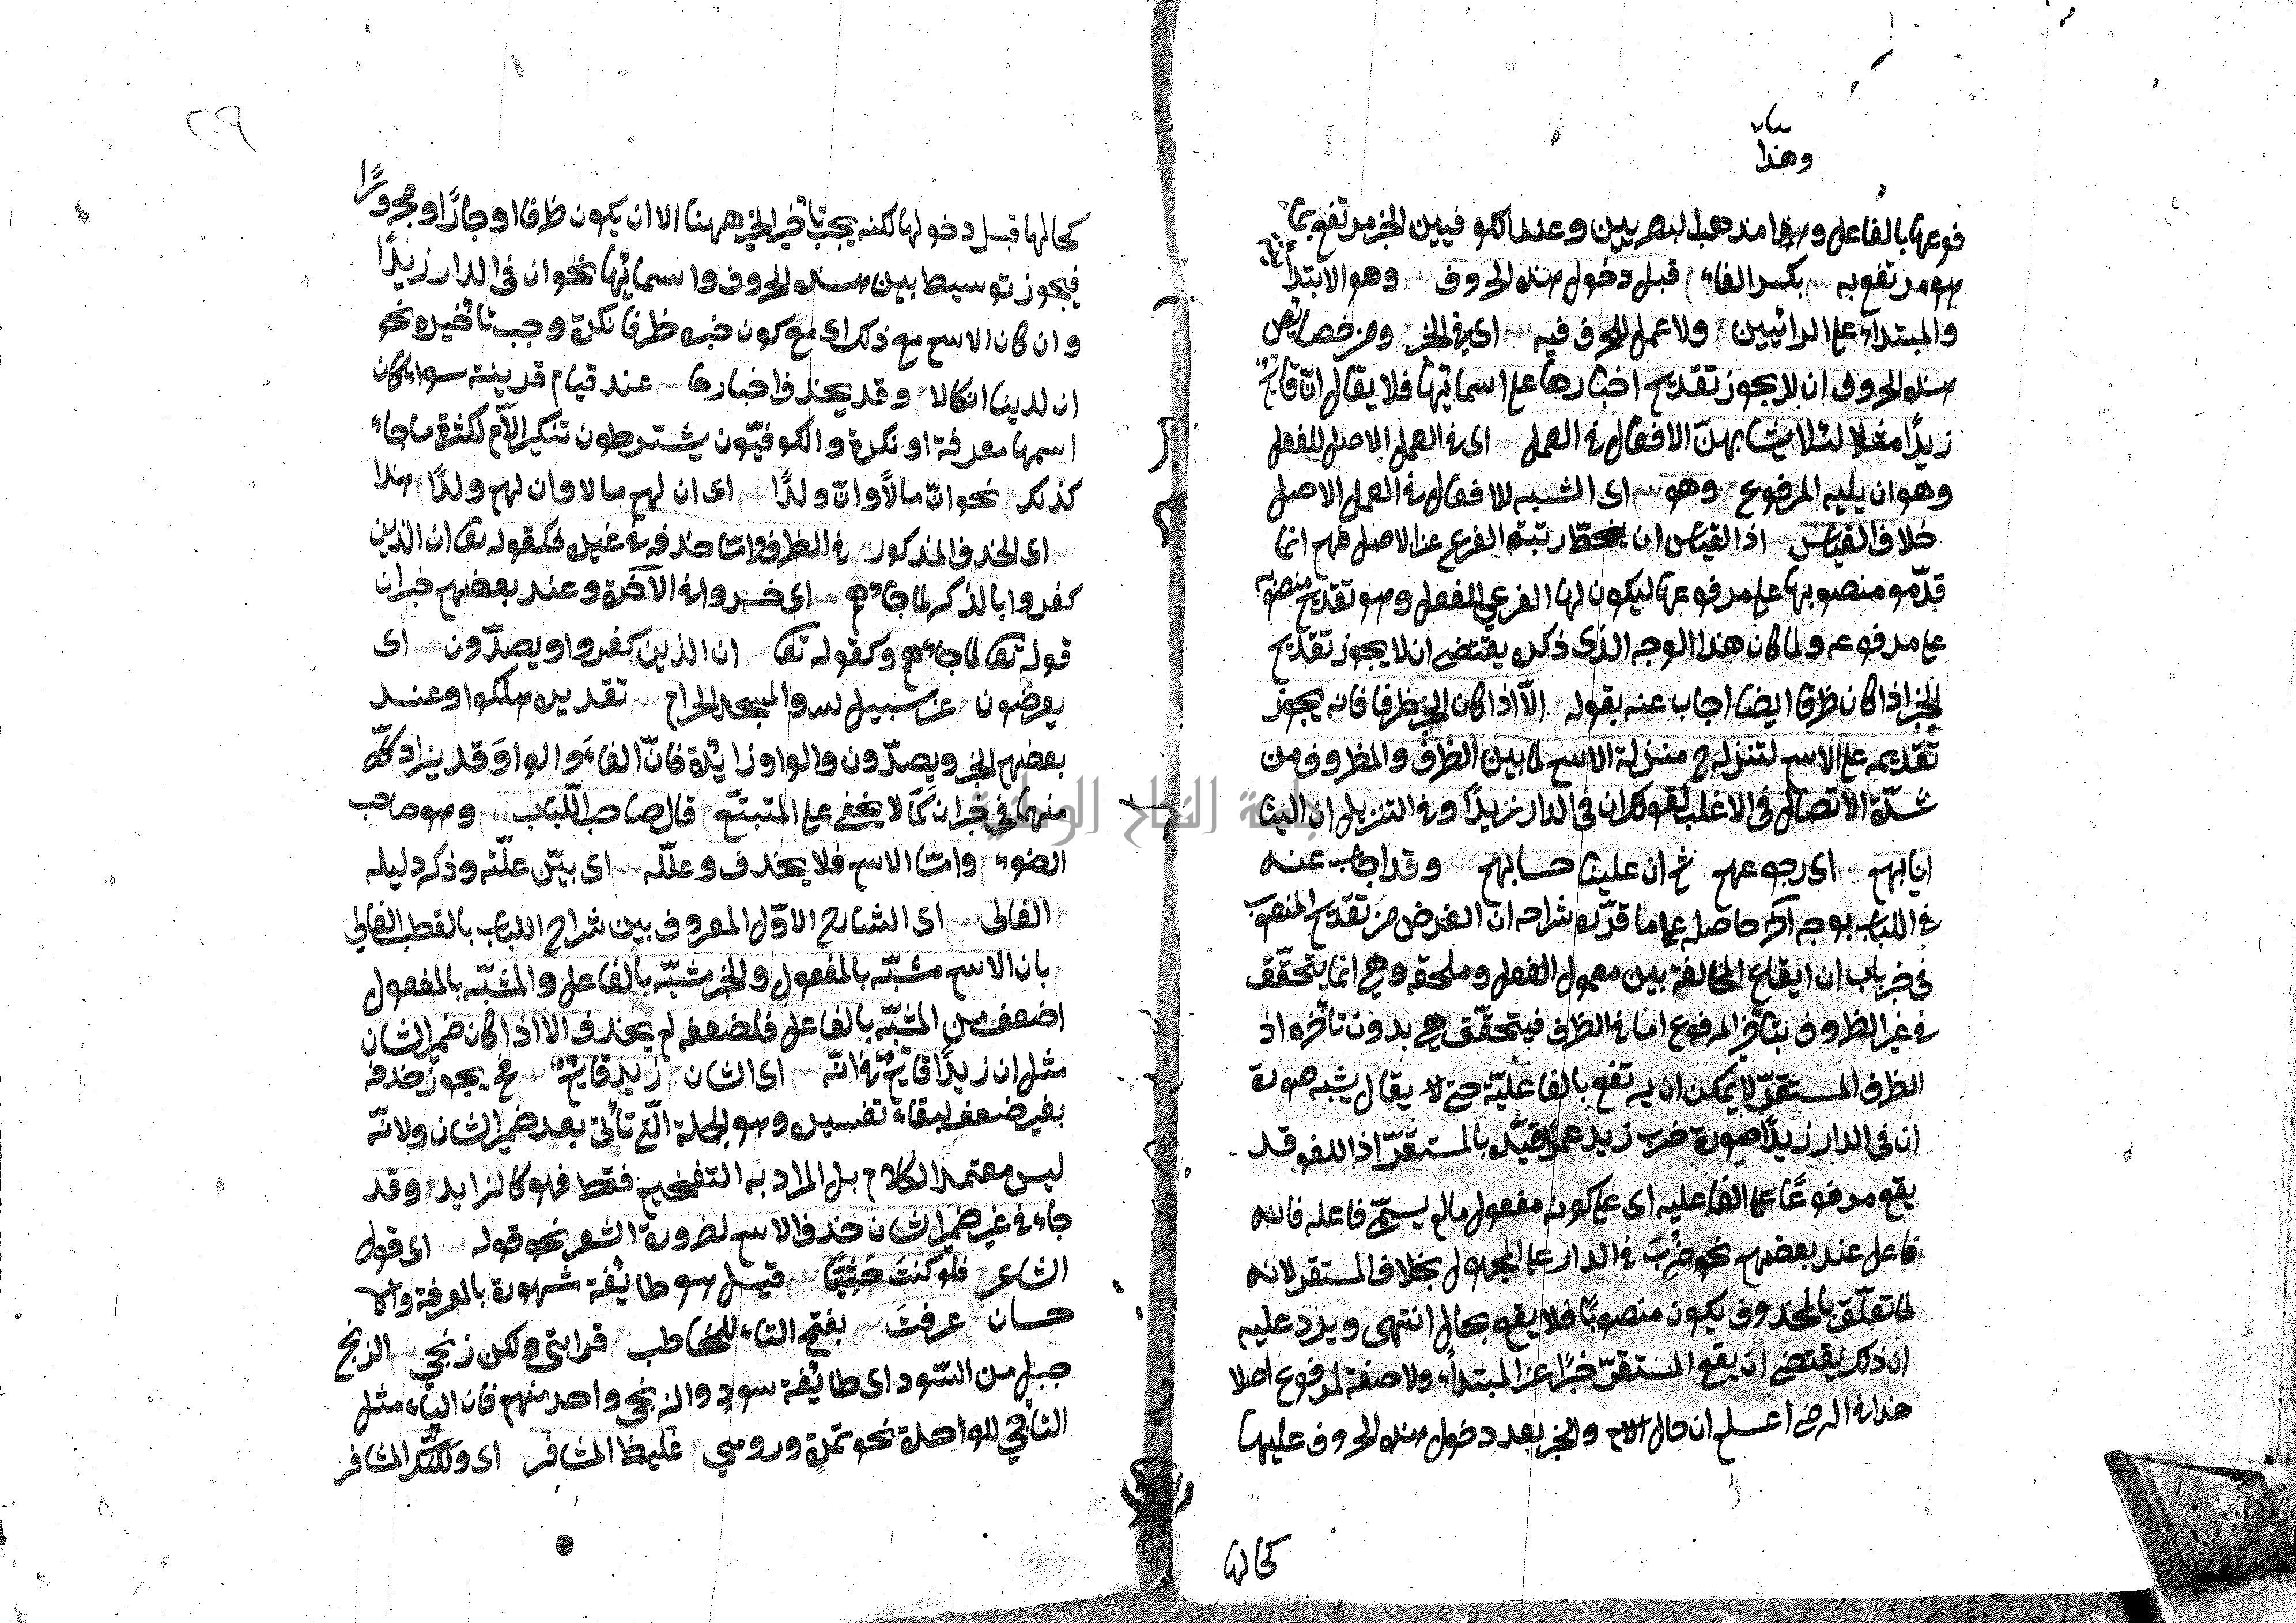 بيان
وهذا
فوعها بالفاعل وهذا مذهب البصريين وعند الكوفيين الخبر مرتفع بما
هو مرتفع به بكسر الفاء قبل دخول هذه الحروف وهو الابتداء
والمبتداء على الرائيين ولا عمل للحرف فيه اى فى الخبر ومن خصايص
هذه الحروف ان لا يجوز تقديم اخبارها على اسمائها فلا يقال انّ قايمٌ
زيدًا مثلا لئلا يشابهنّ الافعال فى العمل اى فى العمل الاصل للفعل
وهو ان يليه المرفوع وهو اى الشبه للافعال فى العمل الاصل
خلاف القياس اذ القياس ان ينحطّ رتبة الفرع عن الاصل فهم انما
قدّمو منصوبها على مرفوعها ليكون لها الفرعى للفعل وهو تقديم منصوبه
على مرفوعه ولما كان هذا الوجه الذى ذكره يقتضى ان لا يجوز تقديم
الخبر اذا كان ظرفا ايضا اجاب عنه بقوله الّا اذا كان الخبر ظرفا فانه يجوز
تقديمه على الاسم لتنزله ح منزلة الاسم لما بين الظرف والمظروف من
شدّة الاتصال فى الاغلب كقولك ان فى الدار زيدًا وفى التنزيل ان الينا
ايابهم اى رجوعهم ثم ان علينا حسابهم وقد اجاب عنه
فى اللباب بوجه آخر حاصله على ما قرّره شراحه ان الغرض من تقديم المنصوب
فى خبر باب ان ايقاع المخالفة بين معمول الفعل وملحقه وهى انما يتحقّق
فى غير الظروف بتأخّر المرفوع اما فى الظرف فيتحقّق هى بدون تأخّره اذ
الظرف المستقرّ لا يمكن ان يرتفع بالفاعليّة حتى لا يقال يشبه صورة
ان فى الدار زيدًا صورة ضرب زيد عمرًا قيّد بالمستقرّ اذ اللغو قد
يقع مرفوعًا على الفاعليه اى على كونه مفعول ما لم يسمّ فاعله فانه
فاعل عند بعضهم نحو ضُرِبَ فى الدار على المجهول بخلاف المستقر لانه
لما تعلّق بالمحذوف يكون منصوبًا فلا يقع بحال انتهى ويرد عليه
ان ذلك يقتضى ان يقع المستقرّ خبرًا عن المبتداء ولا صفة لمرفوع اصلا
هذا فى الرضى اعلم ان حال الاسم والخبر بعد دخول هذه الحروف عليها
كحالها
٢٠٩
كحالها قبل دخولها لكنه يجب تاخير الخبر ههنا الا ان يكون ظرفا او جارًّا ومجرورًا
فيجوز توسيطا بين هذه الحروف واسمائها نحو ان فى الدار زيدًا
وان كان الاسم مع ذلك اى مع كون خبره ظرفا نكرة وجب تاخيره نحو
ان لدينا انكالا وقد يحذف اخبارها عند قيام قرينة سواء كان
اسمها معرفة او نكرة والكوفيّون يشترطون تنكير الاسم لكثرة ما جاء
كذلك نحو انّ مالًا وانّ ولدًا اى ان لهم مالا وان لهم ولدًا هذا
اى الحذف المذكور فى الظرف وامّا حذفه فى غيره فكقوله تعا ان الذين
كفروا بالذكر لما جاءهم اى خسروا فى الآخرة وعند بعضهم خبر ان
قوله تعا لما جاءهم وكقوله تعا ان الذين كفروا ويصدّون اى
يعرضون عن سبيل الله والمسجد الحرام تقديره هلكوا وعند
بعضهم الخبر ويصدّون والواو زائدة فانّ الفاءَ والواوَ قد يزاد كلّ
منهما فى خبر ان كما لا يخفى على المتتبّع قال صاحب اللّباب وهو صاحب
الضوء وامّا الاسم فلا يحذف وعلّله اى بيّن علّته وذكر دليله
الفالى اى الشارح الاوّل المعروف بين شراح اللباب بالقطب الفالى
بان الاسم مشبّه بالمفعول والخبر مشبّه بالفاعل والمشبّه بالمفعول
اضعف من المشبّه بالفاعل فلضعفه لم يحذف الا اذا كان ضمير الشان
مثل ان زيدًا قايمٌ فى انّه اى الشان زيد قايمٌ فح يجوز حذفه
بغير ضعف لبقاء تفسيره وهو الجملة الّتى تأتى بعد ضمير الشان ولانّه
ليس معتمد الكلام بل المراد به التفخيم فقط فهو كالزايد وقد
جاء فى غير ضمير الشان حذف الاسم لضرورة الشعر نحو قوله اى قول
الشاعر فلو كنتَ قيل هو طائفة شهورة بالمعرفة والا
حسان عرفتَ بفتح التاء للمخاطب قرابتى ولكن زنجي الزنج
جبل من السّود اى طائفة سود والزنجى واحد منهم فان الياء مثل
التا فى للواحدة نحو تمرة ورومى غليظ المشافر اى ولكنّك المشافر